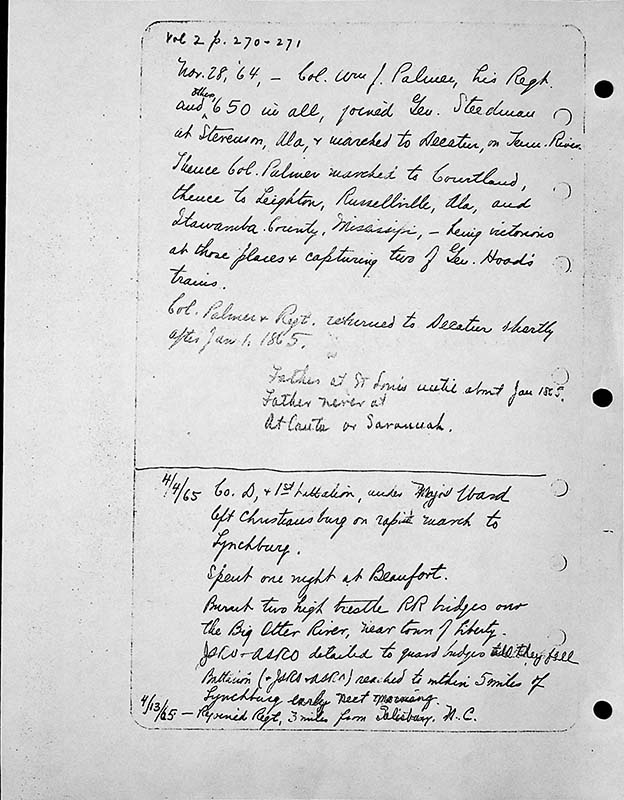 Vol 2 p. 270-271
Nov. 28, '64, - Col. Wm J. Palmer, his Regt.
and others, 650 in all, joined Gen. Steedman
at Stevenson, Ala, + marched to Decatur, on Tenn. River.
Thence Col. Palmer marched to Courtland,
thence to Leighton, Russellville, Ala, and
Itawamba County, Mississippi, - being victorious
at those places + capturing two of Gen. Hood's
trains.
Col. Palmer + Regt. returned to Decatur shortly
after Jan 1. 1865.
Father at St Louis until about Jan 1865.
Father never at
Atlanta or Savannah.
4/4/65 Co. D, + 1st battalion, under Major Ward
left Christiansburg on rapid march to
Lynchburg.
Spent one night at Beaufort.
Burnt two high trestle RR bridges over
the Big Otter River, near town of Liberty.
+ detailed to guard bridges till they fall
Battalion reached to within 5 miles of
Lynchburg early next morning.
4/13/65 - Rejoined Regt, 3 miles from Salisbury, N.C.